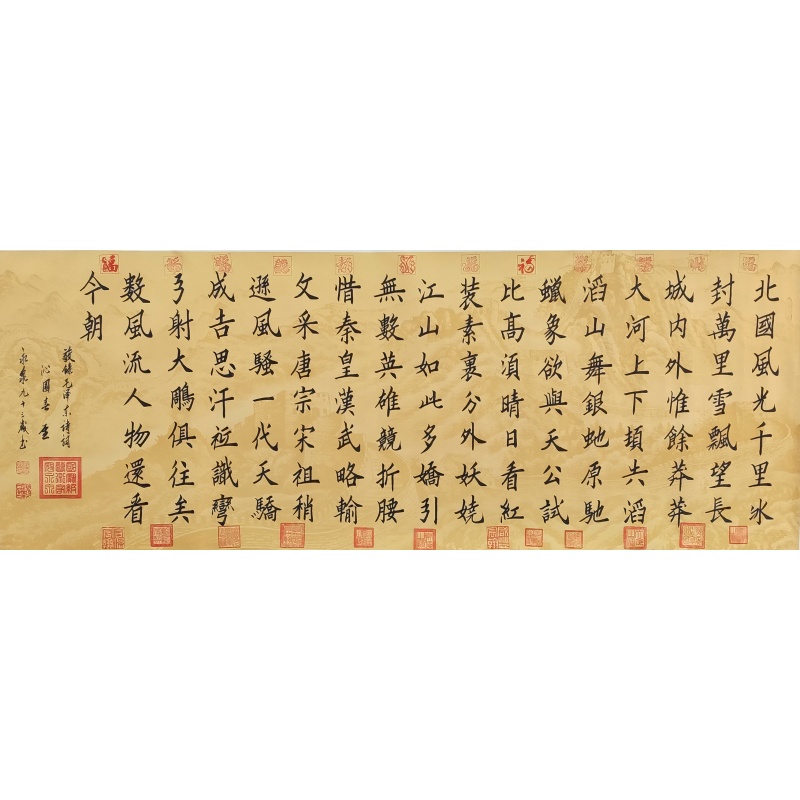 北國風光千里冰
封萬里雪飄望長
城内外惟餘莽莽
大河上下頓失滔
滔山舞銀虵原馳
蠟象欲與天公試
比髙須晴日看紅
装素裹分外妖嬈
江山如此多嬌引
無數英雄競折腰
惜秦皇漢武略輸
文采唐宗宋祖稍
遜風騷一代天驕
成吉思汗祗識彎
弓射大鵰俱往矣
數風流人物還看
今朝
敬錄毛澤东詩詞
沁園春雪
永泉九十三歲书
福